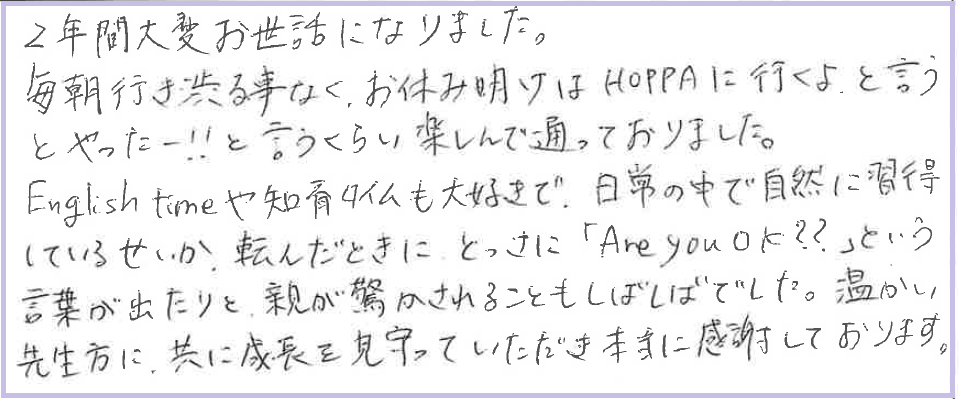 2年間大変お世話になりました。
毎朝行き渋る事なく、お休み明けはHOPPAに行くよ、と言う
とやったー!!と言うくらい楽しんで通っておりました。
English timeや知育タイムも大好きで、日常の中で自然に習得
しているせいか、転んだときに、とっさに「Are you OK??」という
言葉が出たりと、親が驚かされることもしばしばでした。温かい
先生方に、共に成長を見守っていただき本当に感謝しております。